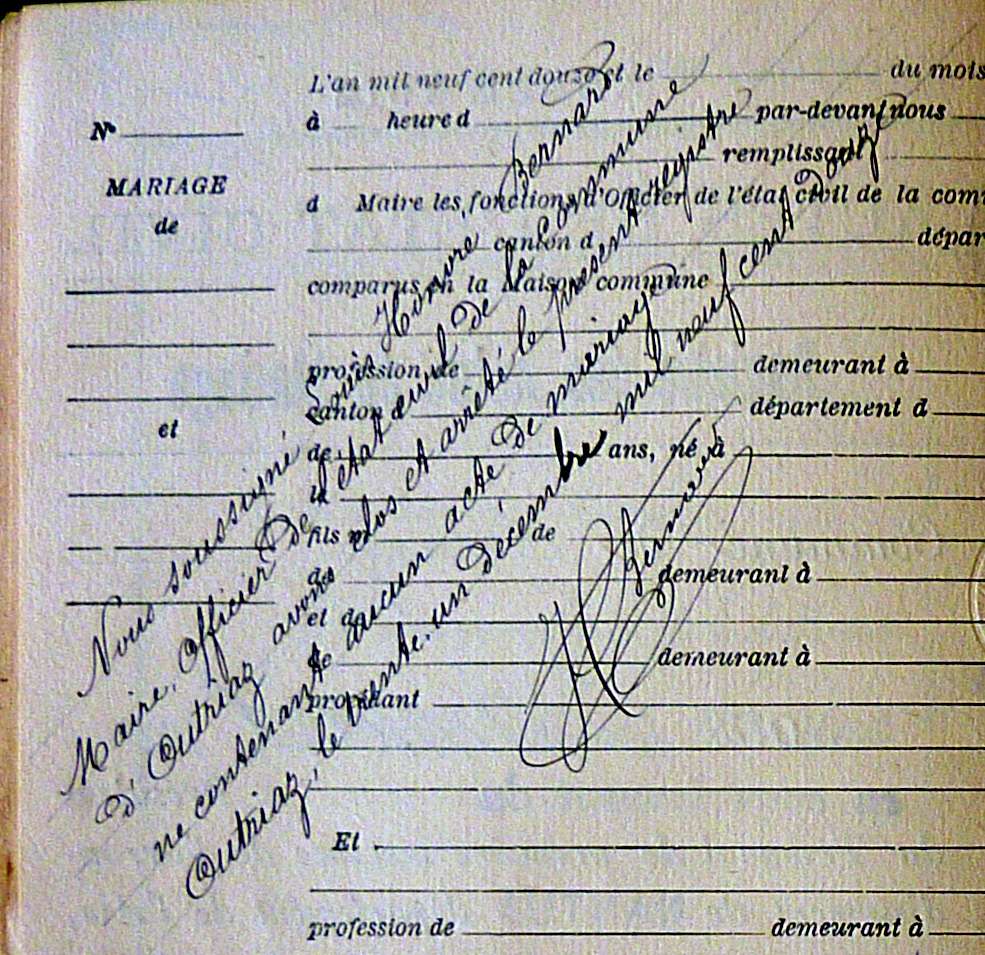 L'an mil neuf cent douze et le du mois
à heure d par-devant nous
remplissant
d Maire les fonctions d'Officier de l'état civil de la com
canton d dépar
comparus en la Maison commune
profession de demeurant à
canton d département d
de ans, né à
le
fils de
de demeurant à
et de
de demeurant à
procédant
Et
profession de demeurant à
N°
MARIAGE
de
et
Nous soussigné Louis Honoré, Bernard
Maire, Officier de l'état civil de la Commune
d'Outriaz avons clos et arrêté le présent registre
ne contenant aucun acte de mariage
Outriaz, le trente-un décembre mil neuf cent douze